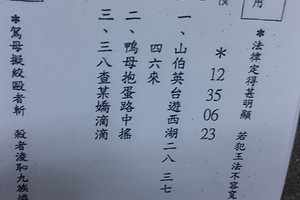 用
＊法律定得甚明顯　若犯王法不容寬
＊
12
35
06
23
一、山伯英台遊西湖二八　三七
四六來
二、鴨母抱蛋路中搖
三、三八查某嬌滴滴
＊駕母擬絞毆者斬　殺者凌恥九族